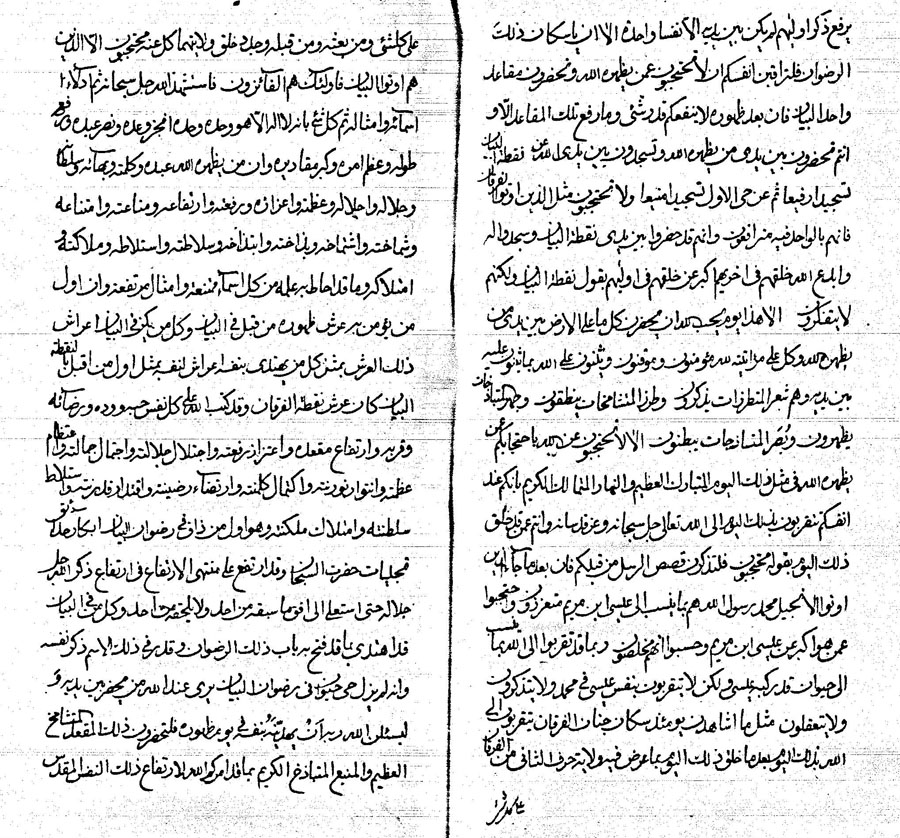 يرفع ذكر اولهم لم يكن بين يديه الا نفسا واحدة الا ان ياسكان ذلك
الرضوان فلتراقبن انفسكم ان لا تحتجبون عن من يظهره الله وتحضرون مقاعد
واحد البيان فان بعد ظهوره لا ينفعكم قدر شئ وما رفع تلك المقاعد الا و
انتم تحضرون بين يدي من يظهره الله وتسجدون بين يدي الله عن نقطة البيان
تسجيدا رفيعا ثم عن حي الاول تسجيدا منيعا ولا تحتجبون مثل الذين اوتوا الفرقان
فانهم بالواحد فيه وانهم قد حضروا بين يدي نقطة البيان وسجدوا له
وابدع الله خلقهم في اخريهم اكبر عن خلقهم في اوليهم يقول نقطة البيان ولكنهم
لا يتفكرون الا هذا يوم يحب الله ان يحضرن كل ما على الارض بين يدي من
يظهره الله وكل على مراتبهم مؤمنون وموقنون ويثنون على الله بما يثنون عليه
بين يديه وهم شعر المتطرزات يذكرون وطرز المتشامخات ينطقون
يظهرون يبطنون الا لا تحتجبون عن الله باحتجابكم عن
يظهره الله في مثل ذلك اليوم المتبارك العظيم والنهار المتمالك الكريم بانكم عند
انفسكم تتقربون بذلك اليوم الى الله تعالى جل سبحانه وعز قدسانه وانتم عمن قد خلق
ذلك اليوم بقوله محتجبون فلتذكرون قصص الرسل من قبلكم فان بعد ما جاء الذين
اوتوا الانجيل محمد رسول الله هم بما ينسب الى عيسى ابن مريم متعززون واحتجبوا
عمن هو اكبر عن عيسى ابن مريم وحسبوا انهم مخلصون وبما قد تقربوا الى الله بما ينسب
الى حيوان قد ركبه عيسى ولكن لا يتقربون بنفس عيسى في محمد ولا يتذكرون
ولا يتعقلون مثل ما اشاهدن يومئذ سكان جنان الفرقان يتقربون الى
الله بذلك اليوم بعد ما خلق ذلك اليوم بما عرض فيه ولاية حرف الثاني من الفرقان
على كل شئ ومن بعثه ومن قبله وحد دخلق ولانهما كل عنه محتجبون الا الذين
هم اوتوا البيان فاولئك هم الفائزون فاستشهد الله جل سبحانه ثم ادلاء
اسمائه وامثاله ثم كل شئ بانه لا اله الا هو وحده وحده انجز وعده ونصر عبده ورفع
طوله وعظم امره وكبر مقاديره وان من يظهره الله عبده وكلمته وبهائه وسلطانه
وجلاله واجلاله وعظمته واعزازه ورفعته وارتفاعه ومناعته وامتناعه
وشماخته واشتماخه وبذاخته وابتذاخه وسلاطته واستلاطه وملاكته في
امتلاكه وما قد احاط به علمه من كل اسماء ممتنعة وامثال مرتفعة وان اول
من يؤمن به عرش ظهوره من قبل في البيان وكل من يكن في البيان اعراش
ذلك العرش بمثل كل من يهتدى بنفسه اعراش لنفسه بمثل اول من اقبل بالنقطة
البيان كان عرش نقطة الفرقان وقد كتب الله على كل نفس حبه ووده ورضائه
وقربه وارتفاع مقعده واعتزاز رفعته واجتلال جلالته واجتمال جمالته واعتظام
عظمته وانتوار نوريته واكتمال كلمته وارتضاء رضيته واقتدار قدرته واستلاط
سلطنته وامتلاك ملكته وهو اول من ذاق في رضوان البيان
تجليات حضرت السبحان وقد ارتفع على منتهى الارتفاع في ارتفاع ذكر الله جل
جلاله حتى استعلى الى افق ما سبقه من احد ولا يلحقه من احد وكل من في البيان
قد اهتدى بما قد فتح به باب ذلك الرضوان وقدر في ذلك الاسم ذكر نفسه
وانه لم يزل حي حيوان في رضوان البيان يرى عند الله من يحضر بين يديه و
ليسئلن الله ربه ان يهدينه نفسه في يوم ظهوره فلتحضرون ذلك المقعد المتشامخ
العظيم والمنبع المتباذخ الكريم بما قد امركم الله لارتفاع ذلك النفس المقدس